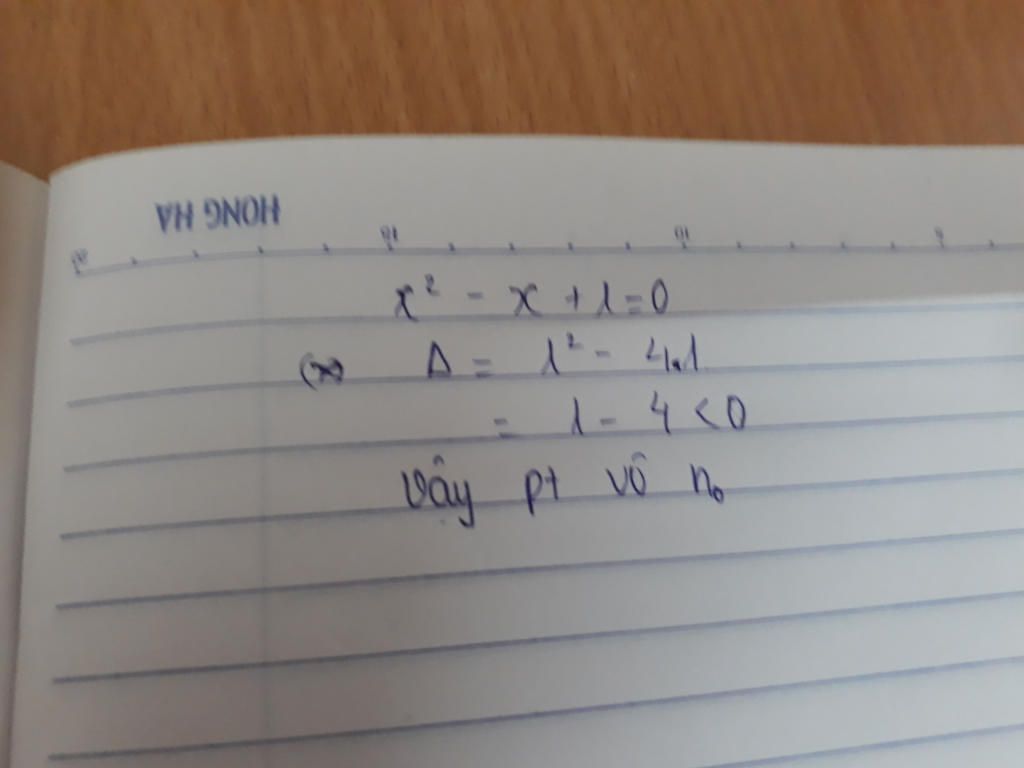 HONG HA
x² - x + 1 = 0
(*) Δ = 1² - 4.1
= 1 - 4 < 0
Vậy pt vô n₀